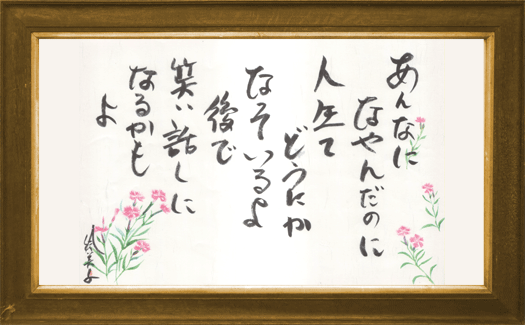 あんなに
なやんだのに
人生て
どうにか
なっているよ
後で
笑い話しに
なるかも
よ